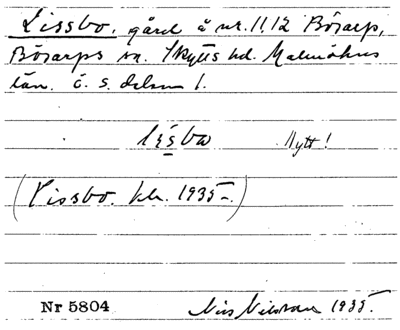 Lissbo, gård å nr. 11, 12 Bösarp,
Bösarps sn. Skytts hd. Malmöhus
län. ö. s. delen 1.
lísbo Nytt!
(Lissbo. kb. 1935.)
Nr 5804 Nils Nilsson 1935.